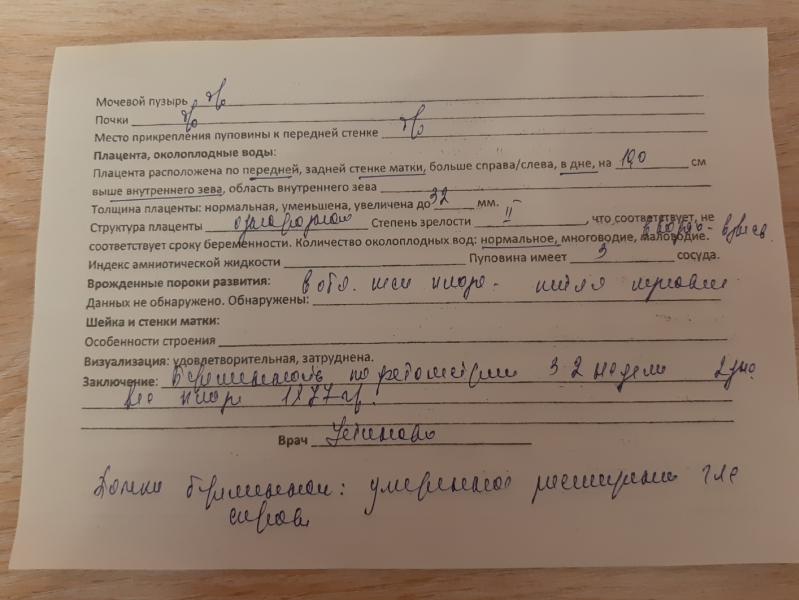 Мочевой пузырь
Почки
Место прикрепления пуповины к передней стенке
Плацента, околоплодные воды:
Плацента расположена по передней, задней стенке матки, больше справа/слева, в дне, на 190 см
выше внутреннего зева, область внутреннего зева
Толщина плаценты: нормальная, уменьшена, увеличена до 32 мм.
Структура плаценты однородная Степень зрелости II , что соответствует, не
соответствует сроку беременности. Количество околоплодных вод: нормальное, многоводие, маловодие.
Индекс амниотической жидкости Пуповина имеет 3 сосуда.
Врожденные пороки развития: в обл. шеи плода - петля пуповины
Данных не обнаружено. Обнаружены:
Шейка и стенки матки:
Особенности строения
Визуализация: удовлетворительная, затруднена.
Заключение: Беременность по фетометрии 32 недели 2 дн.
Вес плода 1877 гр.
Врач Устинова
Почки беременной: умеренное расширение
справа